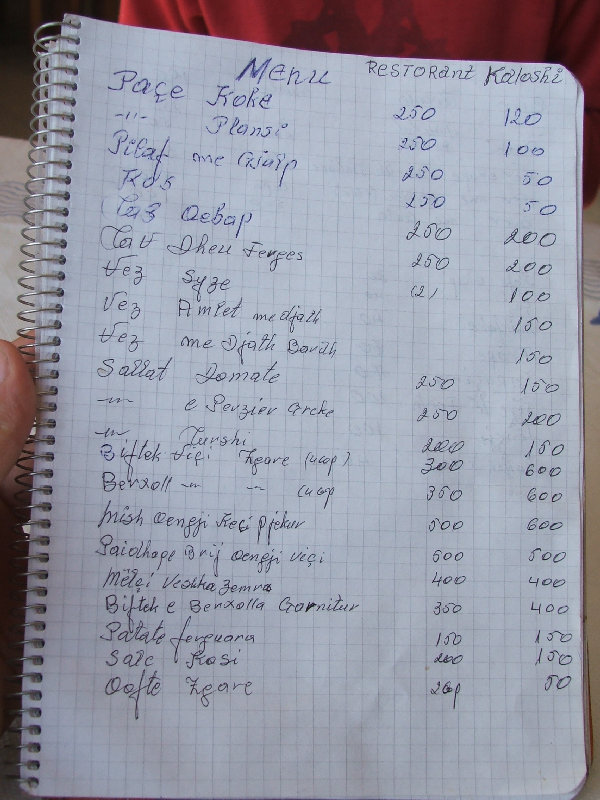 Menu RESTORant Kaloshi
Paçe Koke 250 120
-"- Plansi 250 100
Pilaf me Gjalp 250 50
Kos 250 50
Taz Qebap 250 200
Tav Dheu Ferges 250 200
Vez Syze (2) 100
Vez Amlet me djath 150
Vez me Djath Bardh 150
Sallat Domate 250 150
-"- e Perzier Greke 250 200
-"- Turshi 200 150
Biftek Viçi Zgare (cop) 300 600
Berxoll -"- -"- (cop 350 600
Mish Qengji Keçi pjekur 500 600
Paidhaqe Brij Qengji Viçi 500 500
Mëlçi Veshka Zemra 400 400
Biftek e Berxolla Garnitur 350 400
Patate ferguara 150 150
Salc Kosi 200 150
Qofte Zgare 2cop 50